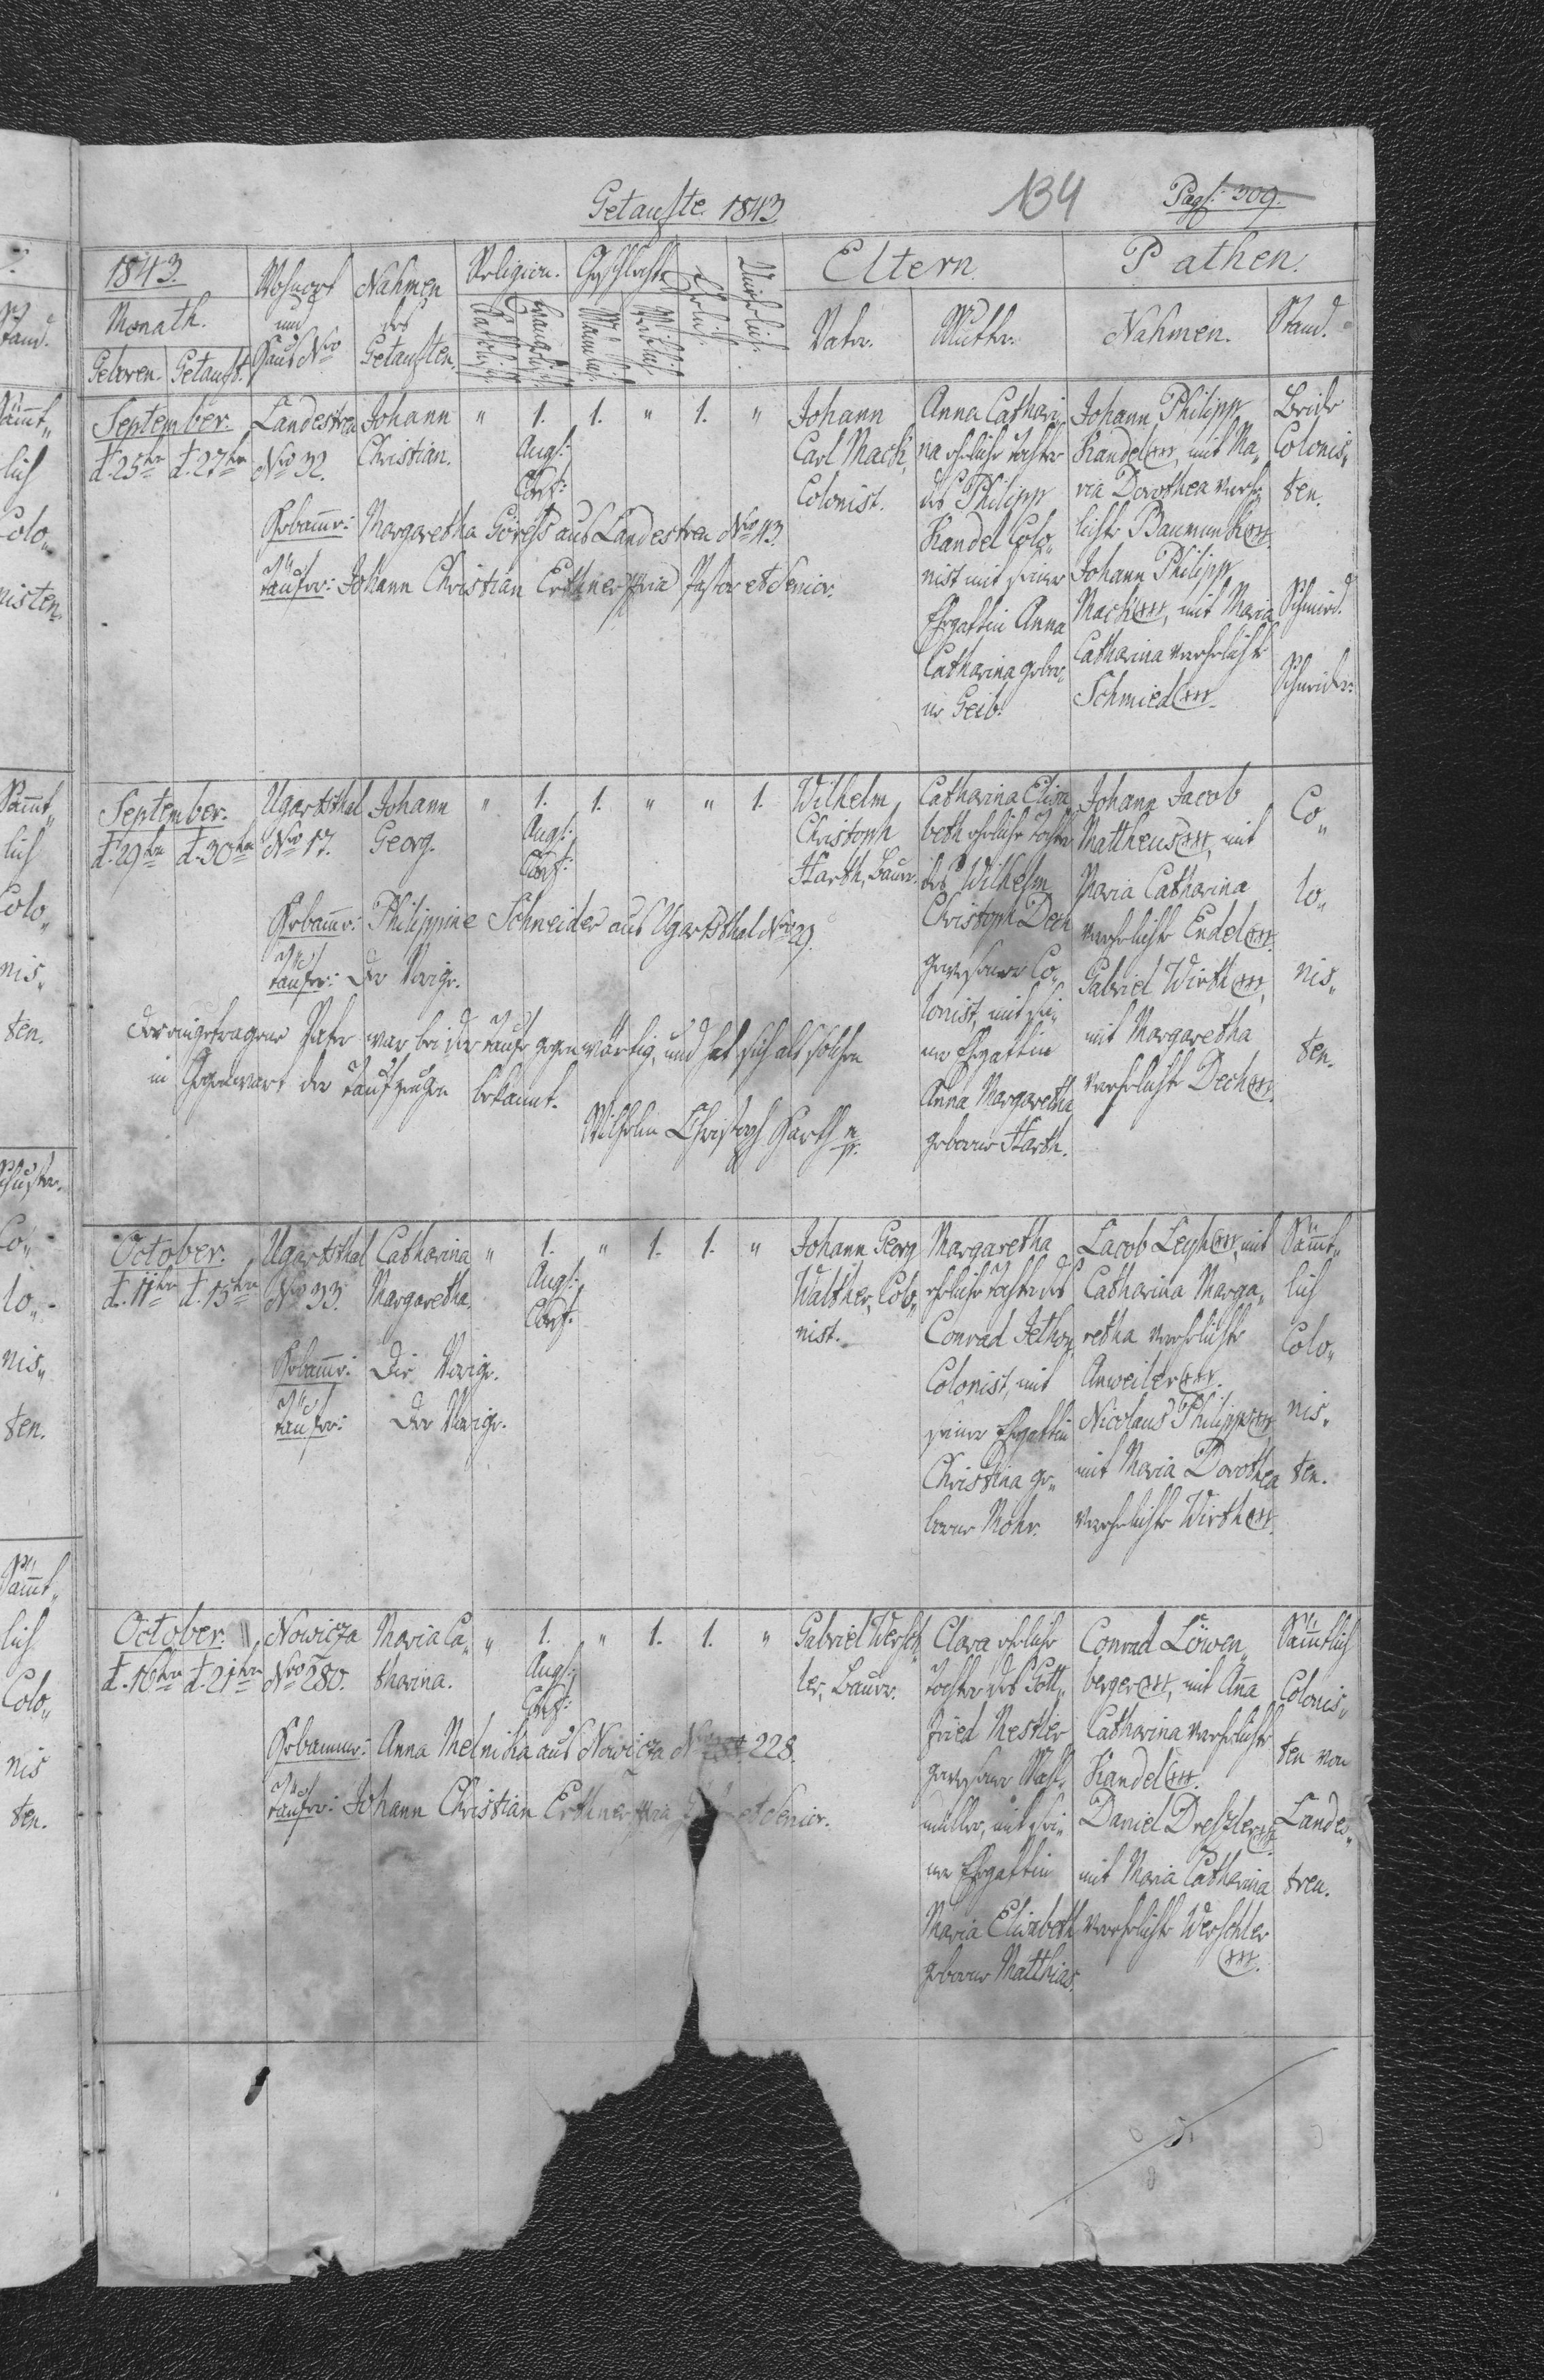 Getaufte 1843.
134
Pag: 309.
1843.
Monath.
Geboren. Getauft.
Wohnort
und
Haus Nro
Nahmen
des
Getauften.
Religion.
Katholisch
Evangelisch
Geschlecht
Männlich
Weiblich
Ehelich.
Unehelich.
Eltern.
Vater.
Mutter.
Pathen.
Nahmen.
Stand.
September.
d. 25ten d. 27ten
Landestreu
Nro 32.
Johann
Christian.
" 1. 1. " 1. "
Augs:
Conf:
Johann
Carl Mack,
Colonist.
Anna Cathari,
na eheliche Tochter
des Philipp
Kandel Colo,
nist mit seiner
Ehegattin Anna
Catharina gebor,
ne Geib.
Johann Philipp
Kandel xxx, mit Ma,
ria Dorothea vereh,
lichte Baumunk xxx.
Johann Philipp
Mack xxx, mit Maria
Catharina verehelichte
Schmied xxx.
Beide
Colonis,
ten.
Schmied.
Schneider.
Hebamme: Margaretha Göress aus Landestreu Nro 43.
Taufer: Johann Christian Erthner mpria Pastor et Senior.
September.
d. 29ten d. 30ten
Ugartsthal
Nro 17.
Johann
Georg.
" 1. 1. " " 1.
Augs:
Conf:
Wilhelm
Christoph
Harth, Bauer.
Catharina Elisa,
beth eheliche Tochter
des Wilhelm
Christoph Dech
gewesener Co,
lonist, mit sei,
ner Ehegattin
Anna Margaretha
geborne Harth.
Johann Jacob
Mattheus xxx, mit
Maria Catharina
verehelichte Endel xxx.
Gabriel Wirth xxx,
mit Margaretha
verehelichte Dech xxx.
Co,
lo,
nis,
ten.
Hebamme: Philippine Schneider aus Ugartsthal Nro 29.
Taufer: Der Vorige.
Der eingetragene Vater war bei der Taufe gegenwärtig, und hat sich als solchen
in Gegenwart der Taufzeugen bekannt.
Wilhelm Christoph Harth
October.
d. 11ten d. 15ten
Ugartsthal
Nro 33.
Catharina
Margaretha.
" 1. " 1. 1. "
Augs:
Conf:
Johann Georg
Walther, Colo,
nist.
Margaretha
eheliche Tochter des
Conrad Jethon
Colonist, mit
seiner Ehegattin
Christina ge,
borne Rohr.
Jacob Leyh xxx, mit
Catharina Marga,
retha verehelichte
Anweiler xxx.
Nicolaus Philipps xxx,
mit Maria Dorothea
verehelichte Wirth xxx.
Sämt,
lich
Colo,
nis,
ten.
Hebamme: Die Vorige.
Taufer: Der Vorige.
October.
d. 16ten d. 21ten
Nowicza
Nro 280.
Maria Ca,
tharina.
" 1. " 1. 1. "
Augs:
Conf:
Gabriel Wersch,
ler, Bauer.
Clara eheliche
Tochter des Gott,
fried Nestler
gewesener Mahl,
müller, mit sei,
ner Ehegattin
Maria Elisabeth
geborne Matthias.
Conrad Löwen,
berger xxx, mit Anna
Catharina verehelichte
Kandel xxx.
Daniel Dreszler xxx.
mit Maria Catharina
verehelichte Werschler
xxx.
Sämtlich
Colonis,
ten von
Landes,
treu.
Hebamme: Anna Melnika aus Nowicza 228.
Taufer: Johann Christian Erthner mpria et Senior.